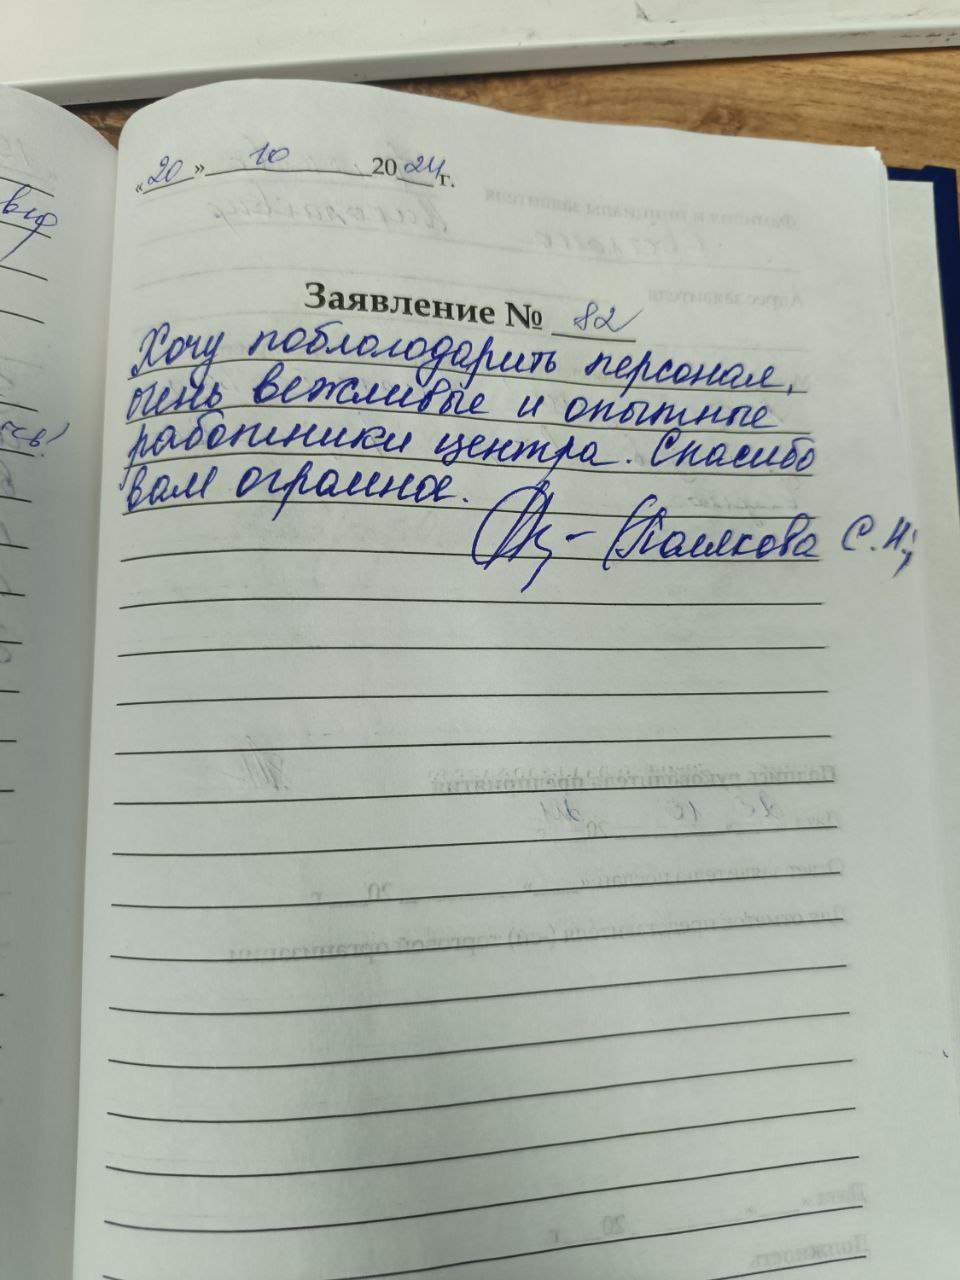 «20» 10 2024 г.
Заявление № 82
Хочу поблолодарить персонал,
очень вежливые и опытные
работники центра. Спасибо
вам огромное.
Полякова С.Н.